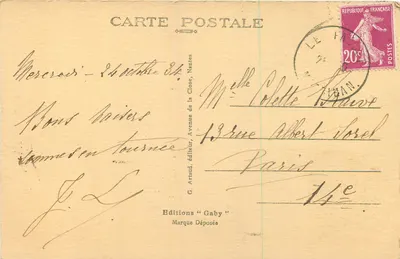 CARTE POSTALE
Mercredi - 24 octobre 34
Bons baisers
sommes en tournée
Mlle Colette
13 rue Albert Sorel
Paris
14e
G. Artaud, éditeur, Avenue de la Close, Nantes
Editions "Gaby"
Marque Déposée
REPUBLIQUE FRANÇAISE
20c
POSTES
LE